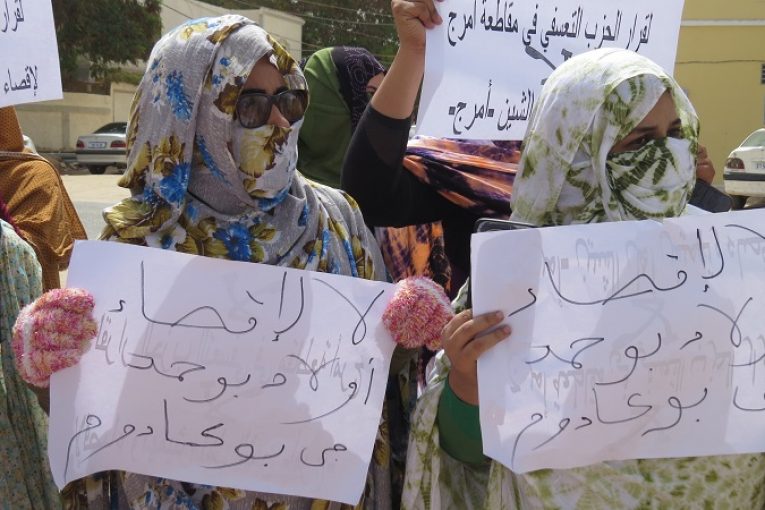 لإقصاء
لقرار الحزب التعسفي في مقاطعة أمرج
الشين -أمرج-
لا لإقصاء
أولاد بوحمد
في بوكادوم
لا لإقصاء
ولاد بوحمد
بوكادوم